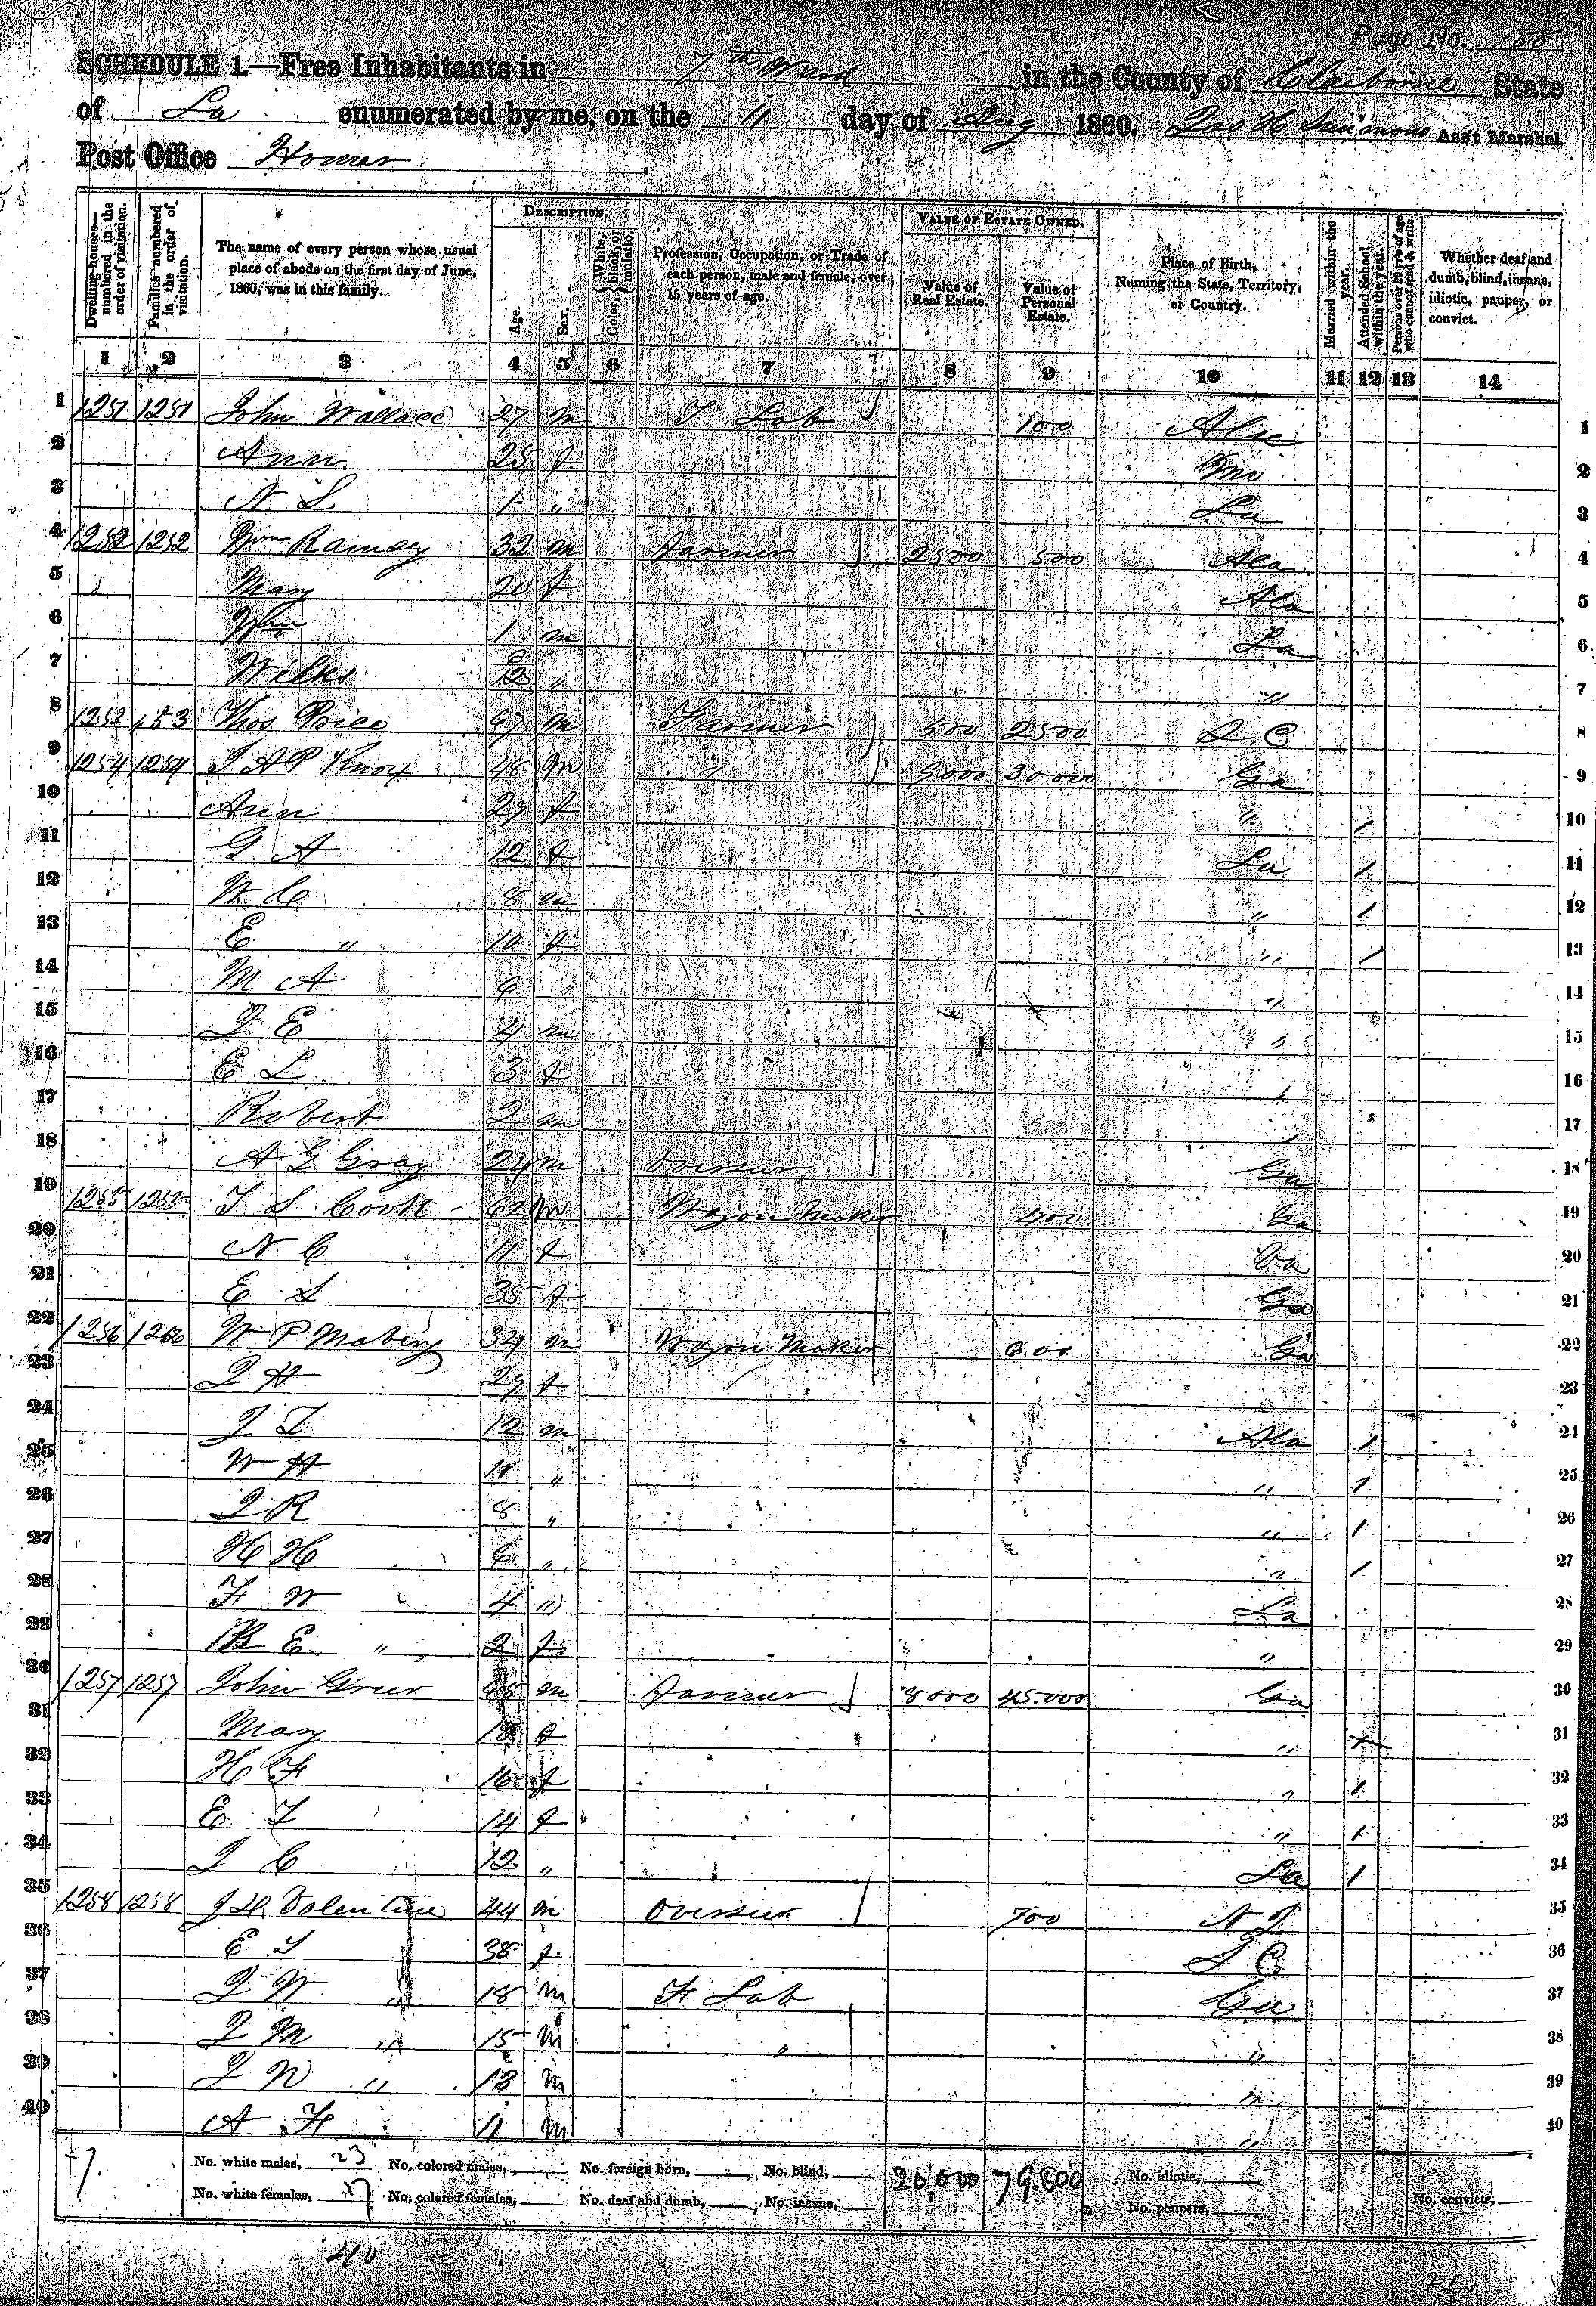 Page No. 188
SCHEDULE 1.—Free Inhabitants in 7th Ward in the County of Claiborne State
of La enumerated by me, on the 11 day of Aug 1860. Ass't Marshal
Post Office Homer
Dwelling-houses—numbered in the order of visitation. Families numbered in the order of visitation. The name of every person whose usual place of abode on the first day of June, 1860, was in this family. DESCRIPTION. Age. Sex. Color, White, black, or mulatto. Profession, Occupation, or Trade of each person, male and female, over 15 years of age. VALUE OF ESTATE OWNED. Value of Real Estate. Value of Personal Estate. Place of Birth, Naming the State, Territory, or Country. Married within the year. Attended School within the year. Persons over 20 y'rs of age who cannot read & write. Whether deaf and dumb, blind, insane, idiotic, pauper, or convict.
1 2 3 4 5 6 7 8 9 10 11 12 13 14
1 1251 1251 John Wallace 27 m F Lab 100 Ala 1
2 Ann 25 f 2
3 N S 1 " La 3
4 1252 1252 Wm Ramsey 32 m Farmer 2500 500 Ala 4
5 Mary 20 f Ala 5
6 Wm 1 m La 6
7 /12 " " 7
8 1253 Thos Price 47 m Farmer 500 2500 S C 8
9 1254 1254 Knox 48 m " 9000 30000 Ga 9
10 Ann 29 f " 1 10
11 G A 12 f La 1 11
12 W C 8 m " 1 12
13 E " 10 f " 1 13
14 M A 6 " " 14
15 J E 4 m " 15
16 E L 3 f 16
17 Robert 2 m 17
18 A G Gray 24 m Overseer Ga 18
19 1255 1255 T S Cook 62 m Wagon Maker 400 Ga 19
20 N C 11 f 20
21 E S 35 f Ga 21
22 1256 W P Mabery 34 m Wagon Maker 600 Ga 22
23 J H 29 f 23
24 J T 12 m Ala 1 24
25 W H 11 " " 1 25
26 J R 8 " " 1 26
27 H H 6 " " 1 27
28 F W 4 " La 28
29 E " 2 f " 29
30 1257 1257 John Greer m Farmer 8000 45.000 Ga 30
31 Mary 18 f " 31
32 H F 16 f " 1 32
33 E T 14 f " 1 33
34 J C 12 " La 1 34
35 1258 1258 Valentine 44 m Overseer 700 N J 35
36 E S 38 f S C 36
37 J W " 18 m F Lab Ga 37
38 J M " 15 m " " 38
39 J W " 13 m " 39
40 A F 11 m " 40
No. white males, 23 No. colored males, No. foreign born, No. blind, 20,000 79.800 No. idiotic,
No. white females, 17 No. colored females, No. deaf and dumb, No. insane, No. paupers, No. convicts,
40